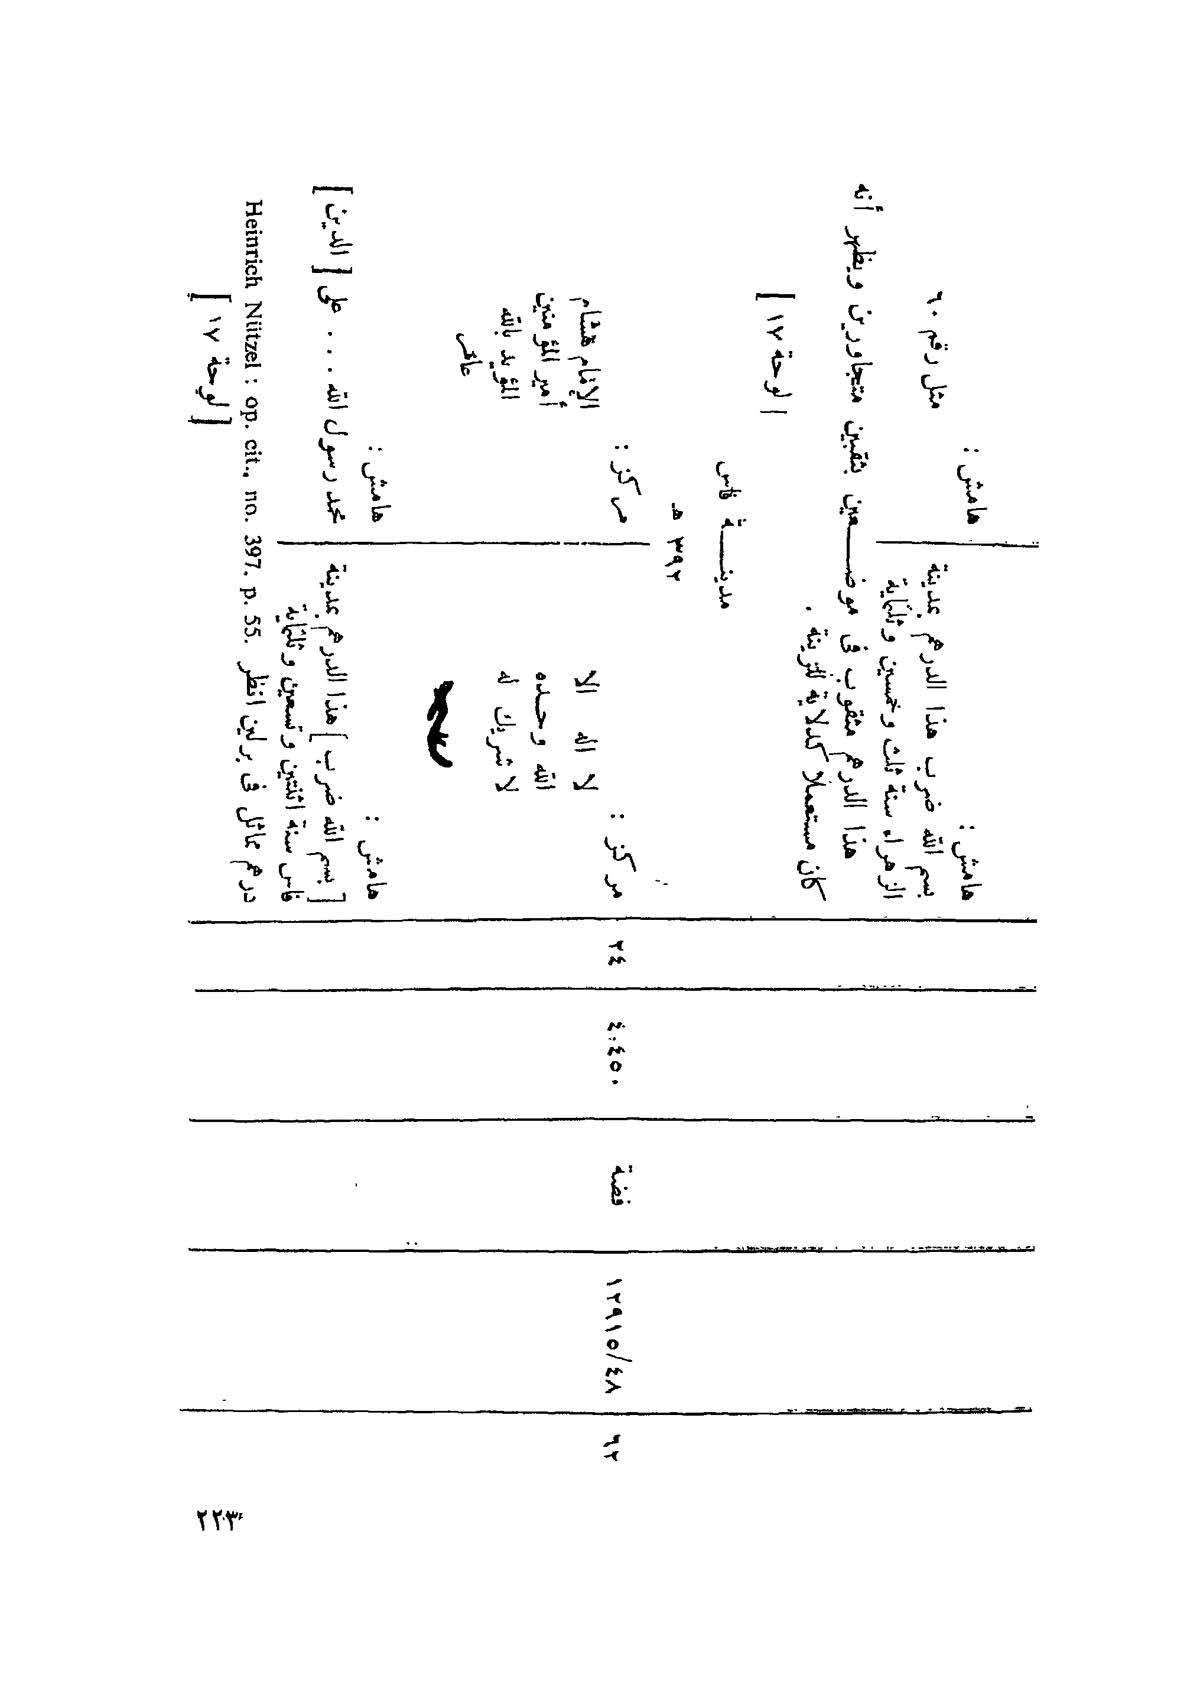 هامش :
بسم الله ضرب هذا الدرهم بمدينة
الزهراء سنة ثلث وخمسين وثلثماية
هامش :
مثل رقم ٦٠
هذا الدرهم مثقوب فى موضعين بثقبين متجاورين ويظهر أنه
كان مستعملا كدلاية للزينة .
[ لوحة ١٧ ]
مدينة فاس
٣٩٢ هـ
٦٢
١٢٩١٥/٤٨
فضة
٤,٤٥٠
٢٤
مركز :
لا اله الا
الله وحده
لا شريك له
مركز :
الإمام هشام
أمير المؤمنين
المؤيد بالله
عامر
هامش :
[ بسم الله ضرب ] هذا الدرهم بمدينة
فاس سنة اثنتين وتسعين وثلثماية
هامش :
محمد رسول الله . . . على [ الدين ]
درهم مماثل فى برلين انظر Heinrich Nützel : op. cit., no. 397. p. 55.
[ لوحة ١٧ ]
٢٢٣